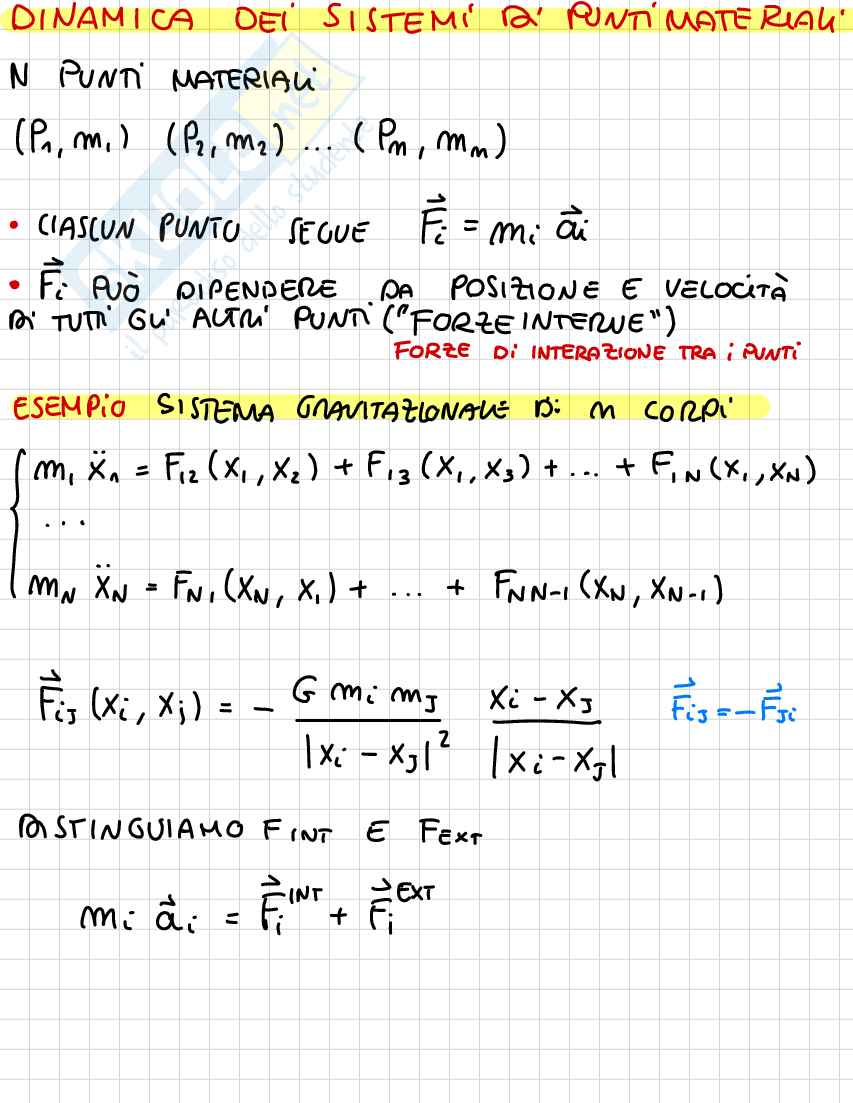 DINAMICA DEI SISTEMI DI PUNTI MATERIALI
N PUNTI MATERIALI
(P₁, m₁) (P₂, m₂) ... (Pₙ, mₙ)
• CIASCUN PUNTO SEGUE F⃗ᵢ = mᵢ a⃗ᵢ
• F⃗ᵢ PUÒ DIPENDERE DA POSIZIONE E VELOCITÀ
DI TUTTI GLI ALTRI PUNTI ("FORZE INTERNE")
FORZE DI INTERAZIONE TRA i PUNTI
ESEMPIO SISTEMA GRAVITAZIONALE DI n CORPI
m₁ ẍ₁ = F₁₂(x₁, x₂) + F₁₃(x₁, x₃) + ... + F₁N(x₁, xN)
...
mN ẍN = FN₁(xN, x₁) + ... + FNN-1(xN, xN-1)
F⃗ij(xi, xj) = - G mi mj / |xi - xj|² xi - xj / |xi - xj| F⃗ij = -F⃗ji
DISTINGUIAMO F INT E F EXT
mᵢ a⃗ᵢ = F⃗ᵢ^INT + F⃗ᵢ^EXT
SKUOLA.net
il paradiso dello studente